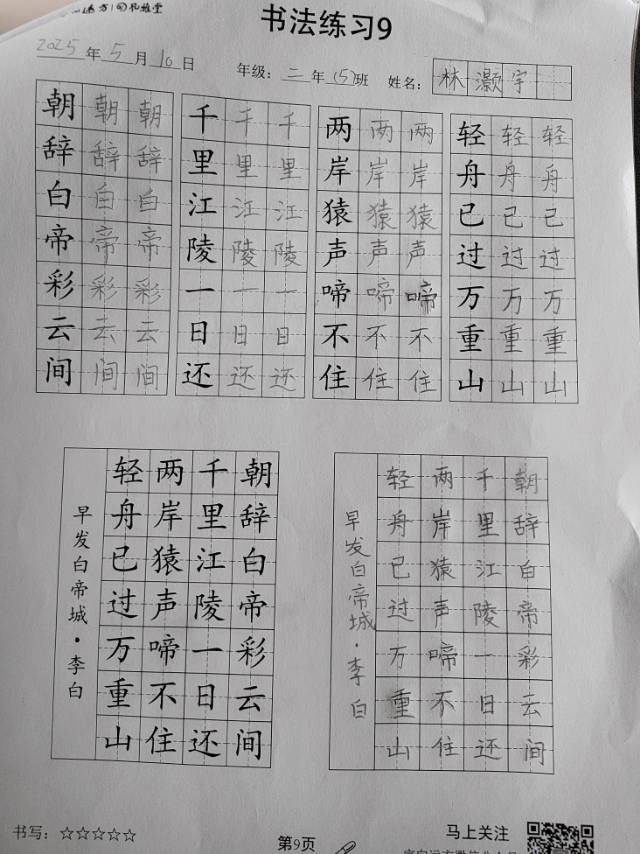 书法练习9
2025年5月10日 年级：二年(5)班 姓名：林灏宇
朝朝朝
辞辞辞
白白白
帝帝帝
彩彩彩
云云云
间间间
千千千
里里里
江江江
陵陵陵
一一一
日日日
还还还
两两两
岸岸岸
猿猿猿
声声声
啼啼啼
不不不
住住住
轻轻轻
舟舟舟
已已已
过过过
万万万
重重重
山山山
朝辞白帝彩云间
千里江陵一日还
两岸猿声啼不住
轻舟已过万重山
早发白帝城·李白
朝辞白帝彩云间
千里江陵一日还
两岸猿声啼不住
轻舟已过万重山
早发白帝城·李白
书写：☆☆☆☆☆
第9页
马上关注